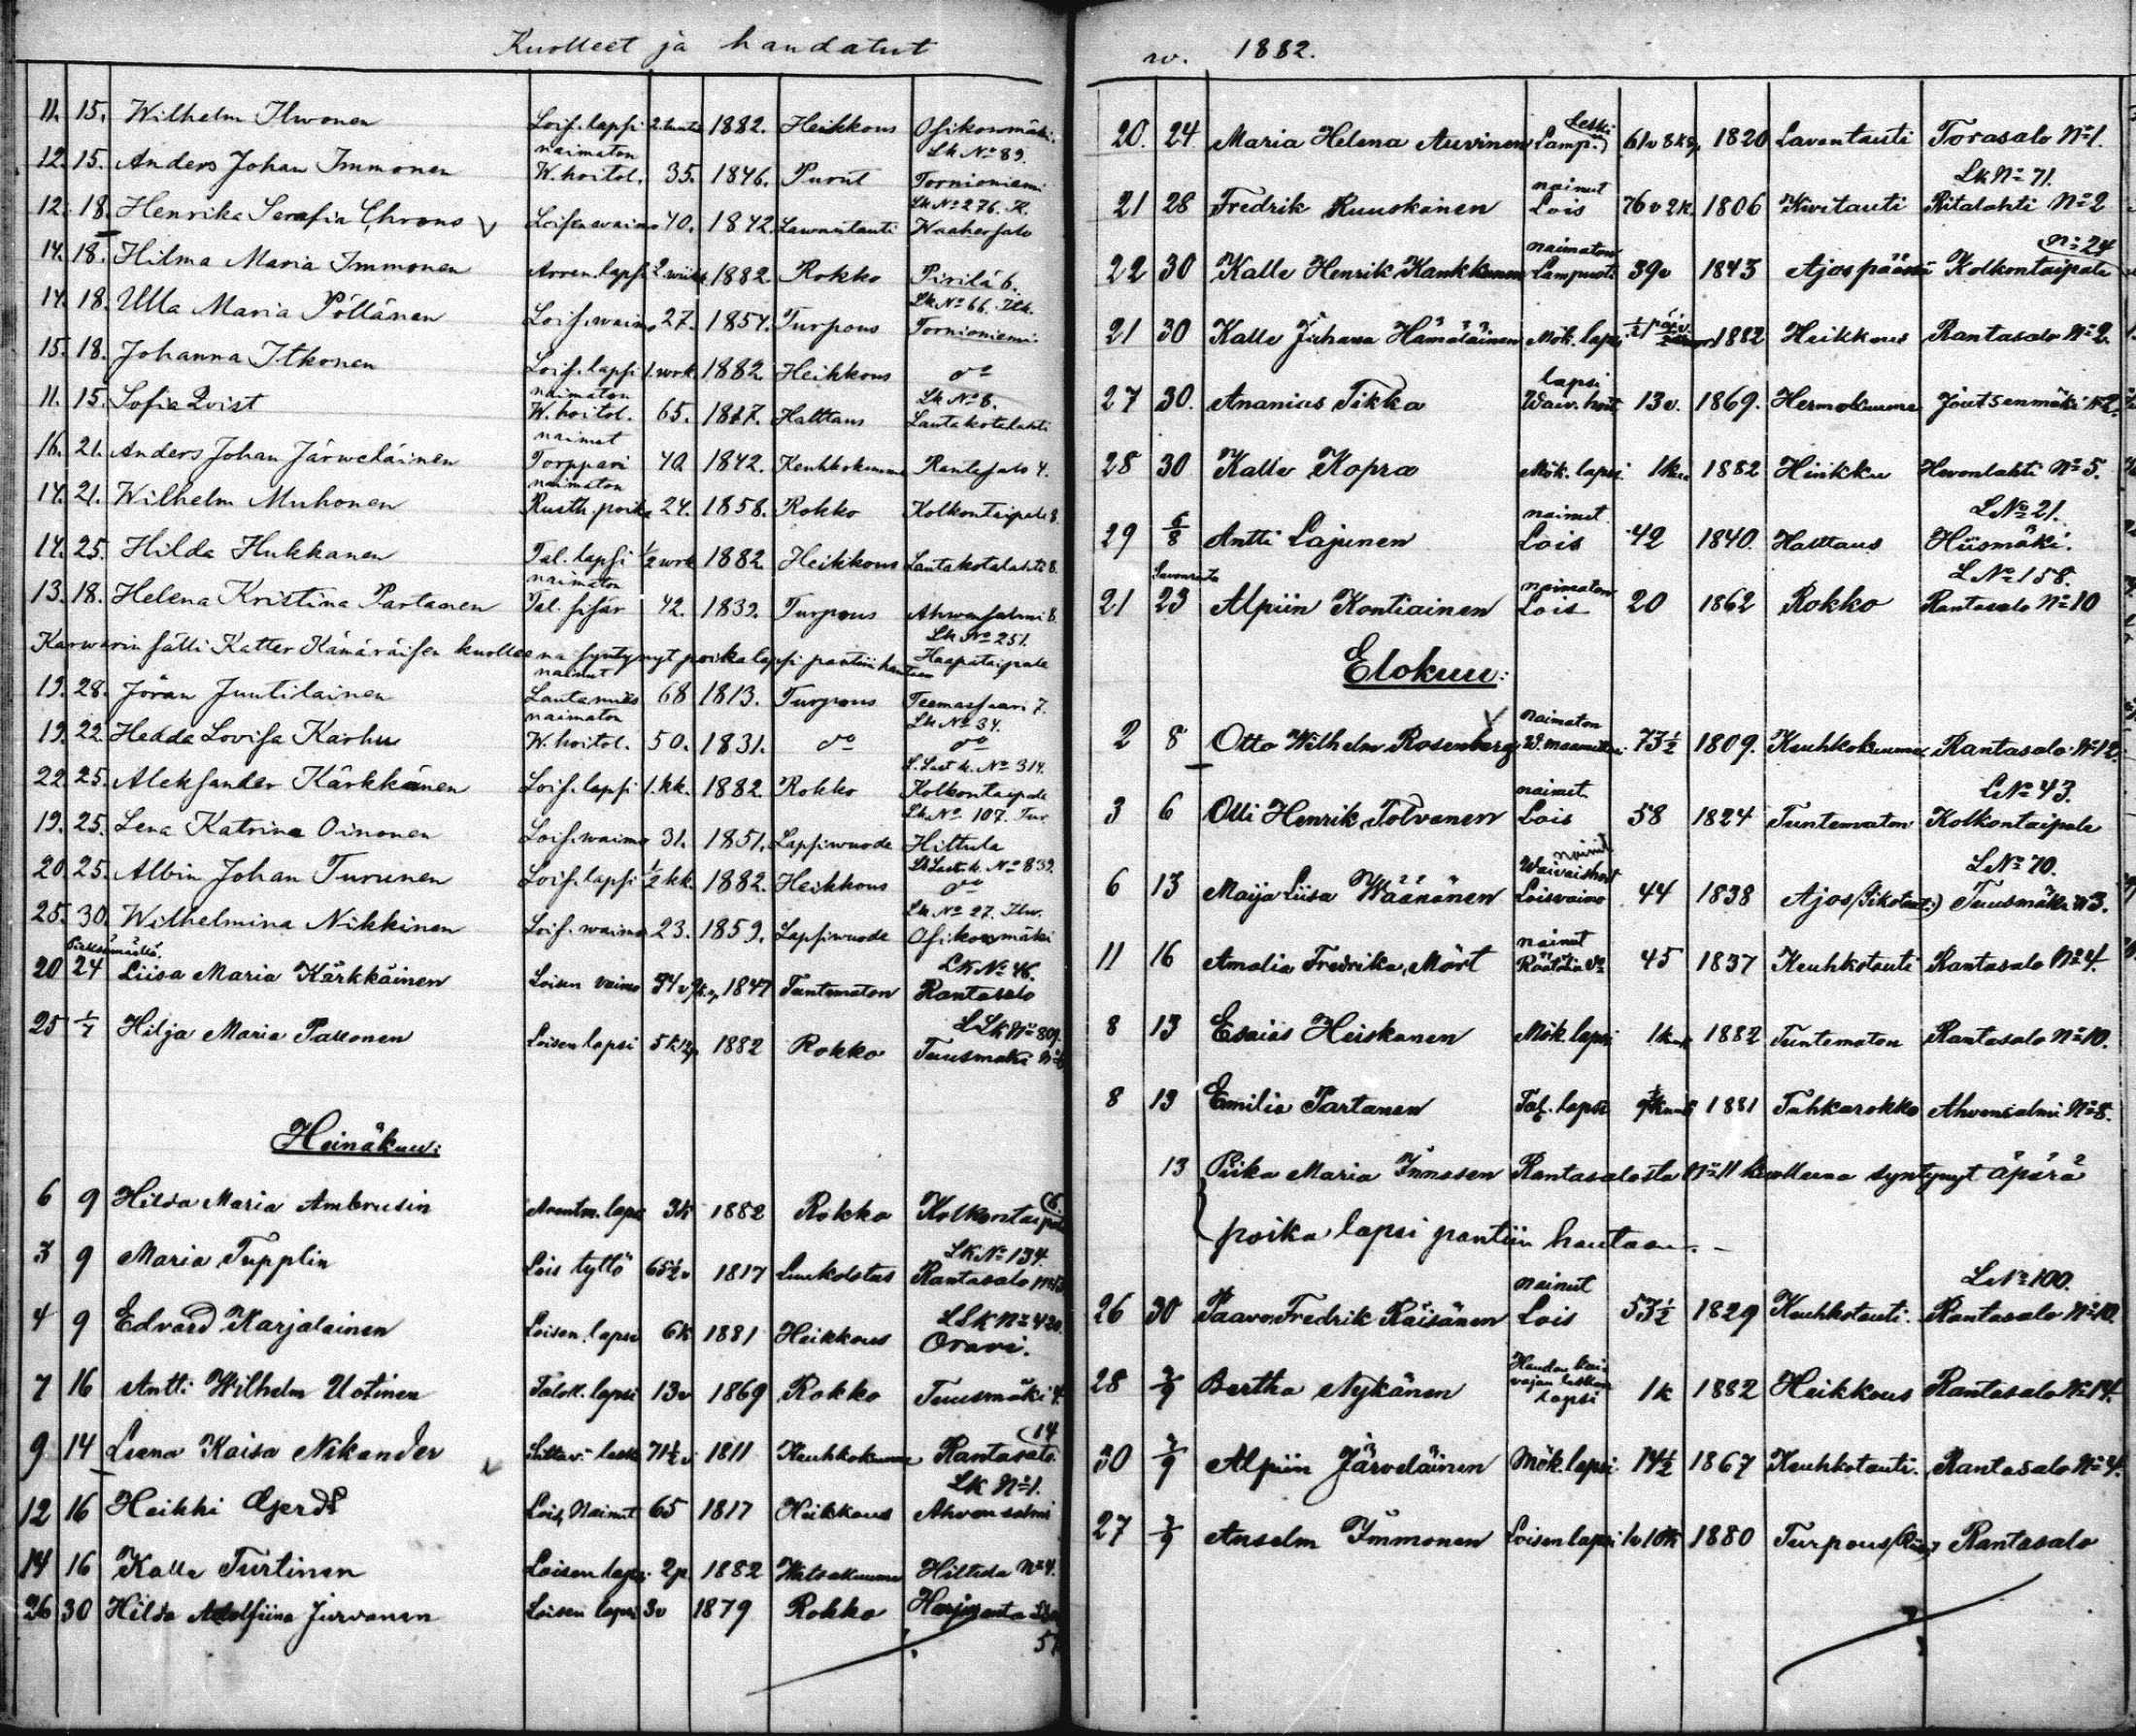 Kuolleet ja haudatut
11. 15. Wilhelm Ilwonen Lois. lapsi 1882. Heikkous
12. 15. Anders Johan Immonen naimaton W. hoitol. 35. 1846. Purut Lk No 89. Tornioniemi
12. 18. Henrika Serafia Loisen waimo 40. 1842. Lawantauti Lk No 276. Waahersalo
14. 18. Hilma Maria Immonen lapsi 2 wiik 1882 Rokko Pirilä 6.
14. 18. Ulla Maria Pöllänen Lois. waimo 27. 1854. Turpous Lk No 66. Itk. Tornioniemi.
15. 18. Johanna Itkonen Lois. lapsi 1. wrk 1882. Heikkous do
11. 15. Sofia Qvist naimaton W. hoitol. 65. 1817. Halttaus Lk No 8. Lautakotalahti
16. 21. Anders Johan Järweläinen naimat Torppari 40. 1842. Keuhkokuume Rantasalo 4.
14. 21. Wilhelm Muhonen naimaton Rusth. poika 24. 1858. Rokko Kolkontaipale 8.
14. 25. Hilda Hukkanen Tal. lapsi ½ wrk 1882. Heikkous Lautakotalahti 8.
13. 18. Helena Kristina Partanen naimaton Tal. sisär 42. 1839. Turpous Ahwensalmi 8.
Karwarin sälli Katter Kämäräisen kuolleena syntynyt poika lapsi pantiin hautaan Lk No 251. Haapataipale
19. 28. Jöran Juutilainen nainut Lautamies 68 1813. Turpous Teemassaari 7.
19. 22. Hedda Lovisa Karhu naimaton W. hoitol. 50. 1831. do Lk No 34. do
22. 25. Aleksander Kärkkäinen Lois. lapsi 1. kk. 1882. Rokko No 314. Kolkontaipale
19. 25. Lena Katrina Oinonen Lois. waimo 31. 1851. Lapsiwuode Lk No 107. Tur. Hiltula
20. 25. Albin Johan Turunen Lois. lapsi ½ kk. 1882. Heikkous No 839. do
25. 30. Wilhelmina Nikkinen Lois. waimo 23. 1859. Lapsiwuode Lk No 27. Ilw. Osikonmäki
20 24 Liisa Maria Kärkkäinen Loisen vaimo 1847 Tuntematon Lk No 46. Rantasalo
25 1/7 Hilja Maria Pakkonen Loisen lapsi 1882 Rokko Tuusmäki
Heinäkuu:
6 9 Hilda Maria Ambrusin lapsi 3k 1882 Rokko Kolkontaipale 6.
3 9 Maria Tupplin Lois tyttö 65½v 1817 LkNo 134. Rantasalo
4 9 Edvard Karjalainen Loisen lapsi 6k 1881 Heikkous LLk No 420. Oravi.
7 16 Antti Wilhelm Uotinen Talok. lapsi 13v 1869 Rokko Tuusmäki 4.
9 14 Leena Kaisa Nikander leski 71½v 1811 Keuhkokuume Rantasalo 14
12 16 Heikki Gjerdt Lois, Nainut 65 1817 Heikkous Lk No 1. Ahvensalmi
14 16 Kalle Turtinen Loisen lapsi 2p 1882 Watsakuume Hiltula No 4.
26 30 Hilda Adolfiina Jurvanen Loisen lapsi 3v 1879 Rokko Harjuranta
w. 1882.
20. 24 Maria Helena Auvinen Leski Lamp. 61v 8k 1820 Lavantauti Torasalo No 1.
21 28 Fredrik Kuuskänen nainut Lois 76v 2k. 1806 Kivitauti Lk No 71. Ritalahti No 2
22 30 Kalle Henrik Kankkunen naimaton Lampuoti 39v 1843 Ajos päässä No 24 Kolkontaipale
21 30 Kalle Juhana Hämäläinen Mök. lapsi 1882 Heikkous Rantasalo No 2.
27 30. Ananias Tikka lapsi Waiv. hoit. 13v. 1869. Hermokuume Joutsenmäki No 2.
28 30 Kalle Kopra Mök. lapsi 1882 Hinkku Hevonlahti No 5.
29 6/8 Antti Lajunen nainut Lois 42 1840. Halttaus LNo 21. Hiismäki.
21 23 Alpiin Kontiainen naimaton Lois 20 1862 Rokko LNo 158. Rantasalo No 10
Elokuu:
2 8 Otto Wilhelm Rosenberg naimaton 73½ 1809. Keuhkokuume Rantasalo No 12.
3 6 Olli Henrik Tolvanen nainut Lois 58 1824 Tuntematon LNo 43. Kolkontaipale
6 13 Maija Liisa Wäänänen Waivaishoit Loisvaimo 44 1838 Ajos LNo 70. Tuusmäki No 3.
11 16 Amalia Fredrika Mört nainut Räätälin 45 1837 Keuhkotauti Rantasalo No 4.
8 13 Esaias Heiskanen Mök. lapsi 1882 Tuntematon Rantasalo No 10.
8 13 Emilie Partanen Tal. lapsi 1881 Tuhkarokko Ahvensalmi No 8.
13 Piika Maria Immosen Rantasalosta No 11 kuolleena syntynyt äpärä
poika lapsi pantiin hautaan.
26 30 Paavo Fredrik Räisänen nainut Lois 53½ 1829 Keuhkotauti. LNo 100. Rantasalo No 10.
28 3/9 Bertha Nykänen Haudan kaivajan lesken lapsi 1k 1882 Heikkous Rantasalo No 14.
30 3/9 Alpiin Järveläinen Mök. lapsi 14½ 1867 Keuhkotauti. Rantasalo No 4.
27 3/9 Anselm Immonen Loisen lapsi 1v 10k 1880 Turpous Rantasalo